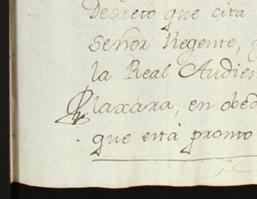 Decreto que cita
Señor Regente,
la Real Audien
Glaxara, en obed
que está pronto